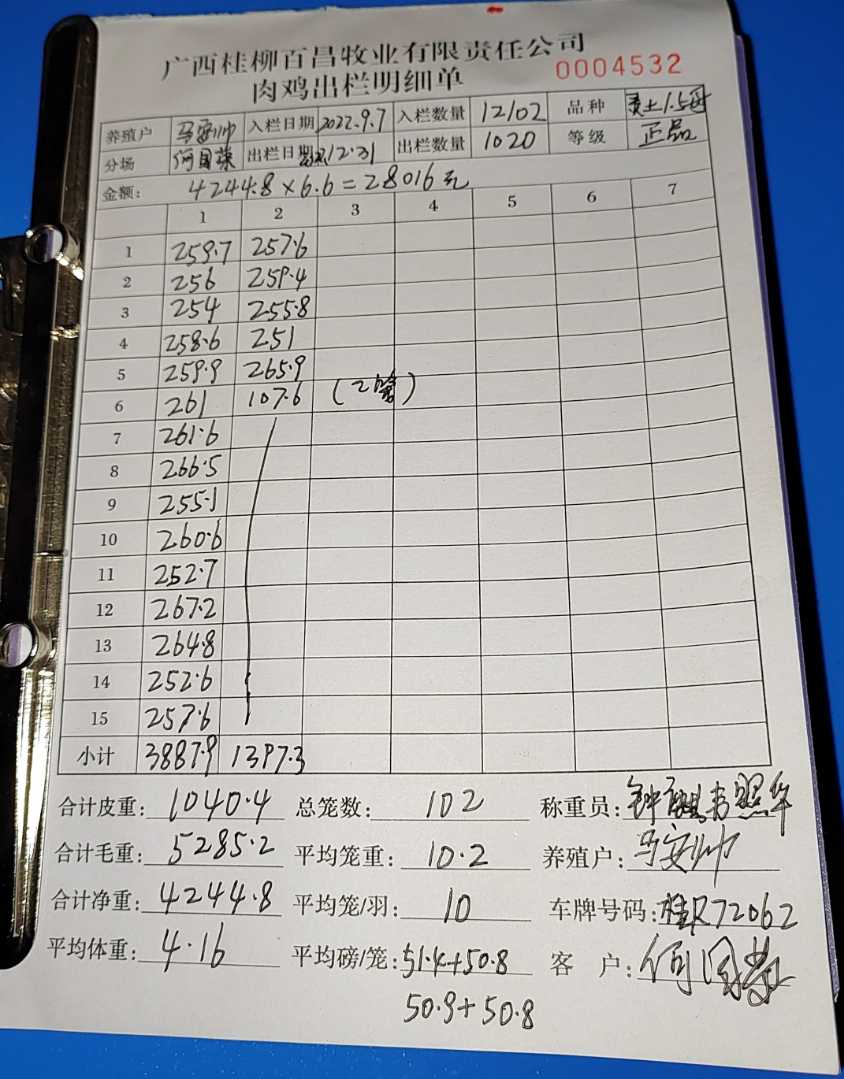 广西桂柳百昌牧业有限责任公司
肉鸡出栏明细单 0004532
养殖户 马安帅 入栏日期 2022.9.7 入栏数量 12102 品种 黄土1.5母
分场 何国荣 出栏日期 12.31 出栏数量 1020 等级 正品
金额: 4244.8×6.6=28016元
1 2 3 4 5 6 7
1 259.7 257.6
2 256 259.4
3 254 255.8
4 258.6 251
5 259.9 265.9
6 261 107.6 (2笼)
7 261.6
8 266.5
9 255.1
10 260.6
11 252.7
12 267.2
13 264.8
14 252.6
15 257.6
小计 3887.9 1397.3
合计皮重: 1040.4 总笼数: 102 称重员: 钟
合计毛重: 5285.2 平均笼重: 10.2 养殖户: 马安帅
合计净重: 4244.8 平均笼/羽: 10 车牌号码: 桂R72062
平均体重: 4.16 平均磅/笼: 51.4+50.8 客 户: 何国荣
50.9+50.8